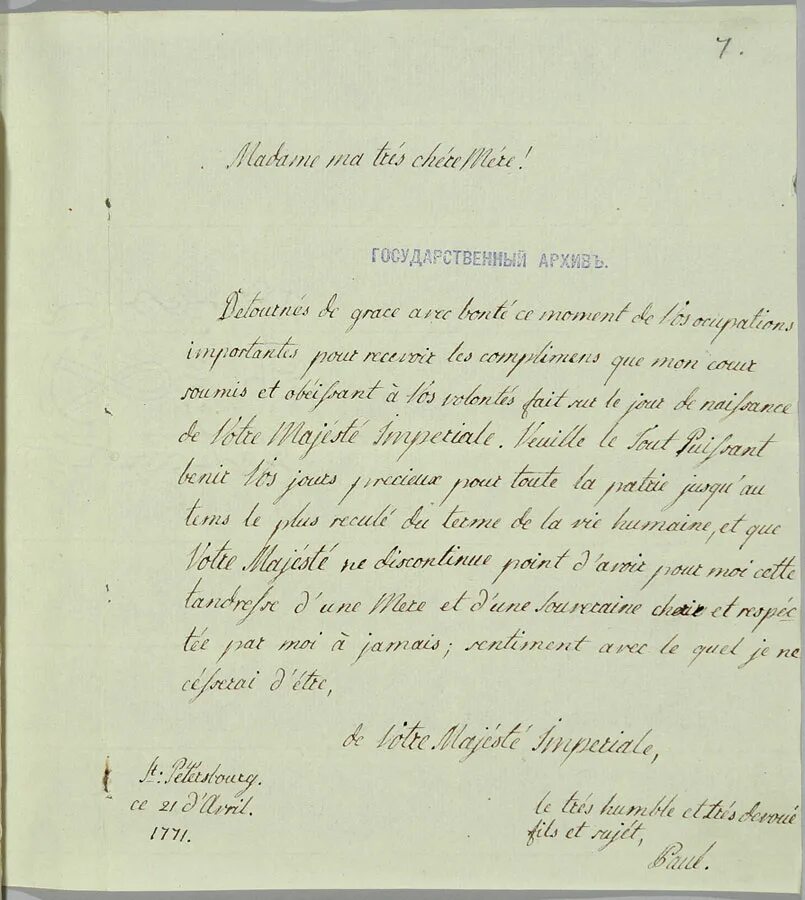 7.
Madame ma trés chére Mére!
ГОСУДАРСТВЕННЫЙ АРХИВЪ.
Detournés de grace avec bonté ce moment de Vos ocupations
importantes pour recevoir les complimens que mon coeur
soumis et obéissant à Vos volontés fait sur le jour de naissance
de Votre Majésté Imperiale. Veuille le Tout Puissant
benir Vos jours precieux pour toute la patrie jusqu'au
tems le plus reculé du terme de la vie humaine, et que
Votre Majésté ne discontinue point d'avoir pour moi cette
tandresse d'une Mere et d'une Souveraine cherie et respéc-
tée par moi à jamais; sentiment avec le quel je ne
césserai d'étre,
de Votre Majésté Imperiale,
St: Pétersbourg.
ce 21 d'Avril.
1771.
le trés humble et trés devoué
fils et sujét,
Paul.